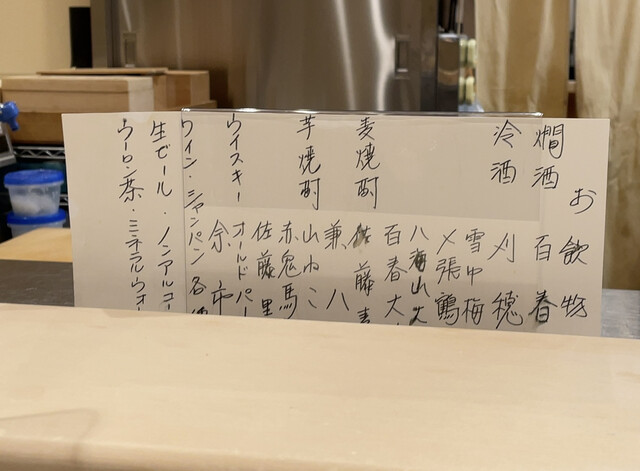 お飲物
燗酒 百春
冷酒 刈穂
雪中梅
〆張鶴
八海山大
百春大
麦焼酎 佐藤麦
兼八
芋焼酎 山ねこ
赤鬼馬
佐藤黒
ウイスキー オールドパー
余市
ワイン・シャンパン各種
生ビール・ノンアルコー
ウーロン茶・ミネラルウォー